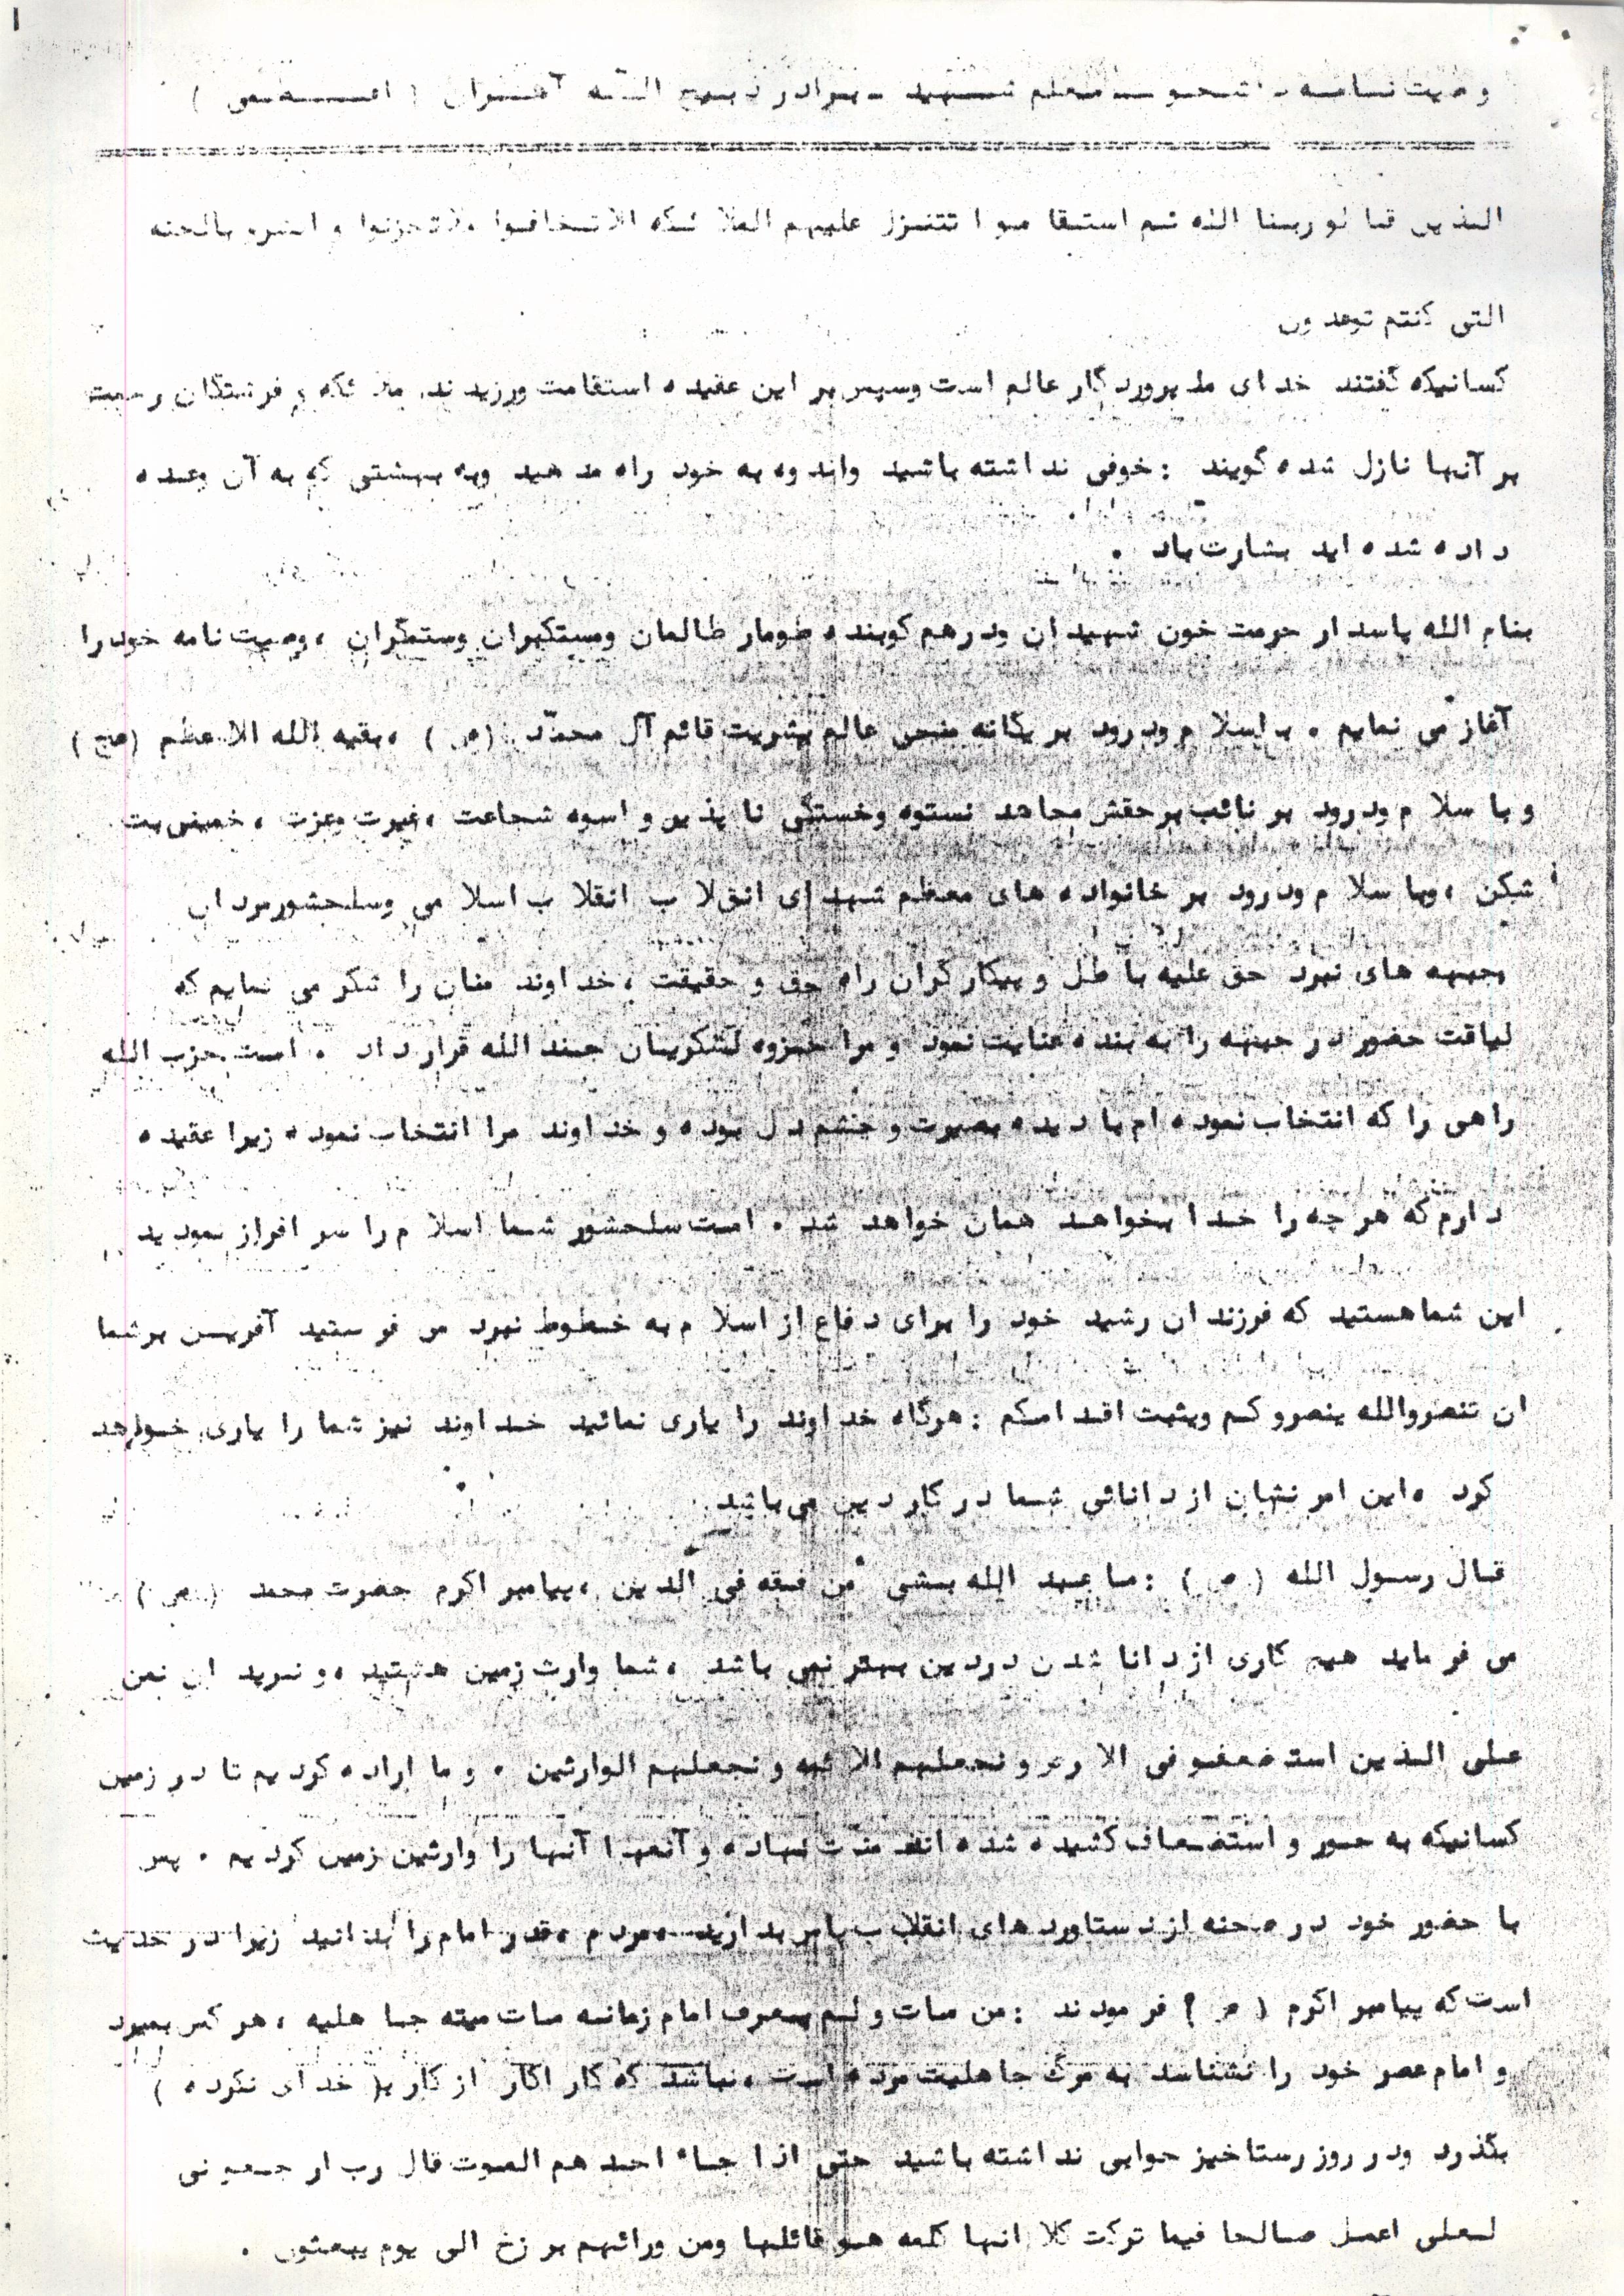 وصیت نامه دانشجو معلم شهید برادر ذبیح الله آهنران ( اعظمی )
الذین قالو ربنا الله ثم استقا موا تتنزل علیهم الملا ئکه الاتخافوا ولاتحزنوا و ابشرو بالجنه
التی کنتم توعدون
کسانیکه گفتند خدای ما پروردگار عالم است وسپس بر این عقیده استقامت ورزیدند. ملا ئکه و فرشتگان رحمت
بر آنها نازل شده گویند : خوفی نداشته باشید واندوه به خود راه مدهید وبه بهشتی که به آن وعده
داده شده اید بشارت باد .
بنام الله پاسدار حرمت خون شهیدان ودرهم کوبنده طومار ظالمان ومستکبران وستمگران ، وصیت نامه خودرا
آغاز می نمایم . با سلا م ودرود بر یگانه منجی عالم بشریت قائم آل محمد (ص) ، بقیه الله الاعظم (عج)
و با سلا م ودرود بر نائب برحقش مجاهد نستوه وخستگی نا پذیر و اسوه شجاعت ، غیرت وعزت ، خمینی بت
شکن ، وبا سلا م ودرود بر خانواده های معظم شهدای انقلا ب انقلا ب اسلا می وسلحشورمردان
جبهه های نبرد حق علیه با طل و پیکارگران راه حق و حقیقت ، خداوند منان را شکر می نمایم که
لیاقت حضور در جبهه را به بنده عنایت نمود و مرا جزوه لشکریان جند الله قرار داد . امت حزب الله
راهی را که انتخاب نموده ام با دیده بصیرت و چشم دل بوده و خداوند مرا انتخاب نموده زیرا عقیده
دارم که هر چه را خدا بخواهد همان خواهد شد . امت سلحشور شما اسلا م را سر افراز نمودید
این شماهستید که فرزندان رشید خود را برای دفاع از اسلا م به خطوط نبرد می فرستید آفرین برشما
ان تنصروالله ینصروکم ویثبت اقدامکم : هرگاه خداوند را یاری نمائید خداوند نیز شما را یاری خواهد
کرد ، این امر نشان از دانائی شما در کار دین می باشد
قال رسول الله (ص) : ما عبد الله بشی من فقه فی الدین ، پیامبر اکرم حضرت محمد (ص)
می فرماید هیچ کاری از دانا شدن دردین بهتر نمی باشد ، شما وارث زمین هستید ، و نرید ان نمن
علی الذین استضعفو فی الا رض و نجعلهم الائمه و نجعلهم الوارثین . و ما اراده کردیم تا در زمین
کسانیکه به جور و استضعاف کشیده شده اند منت نهاده و آنها آنها را وارثین زمین کردیم . پس
با حضور خود در صحنه از دستاوردهای انقلاب پاس بدارید ، مردم ، قدر امام را بدانید زیرا در حدیث
است که پیامبر اکرم (ص) فرمودند : من مات و لم یعرف امام زمانه مات میته جا هلیه ، هر کس بمیرد
و امام عصر خود را نشناسد به مرگ جاهلیت مرده است ، نباشد که کار اکار از کار ( خدای نکرده )
بگذرد ودر روز رستاخیز جوابی نداشته باشید حتی اذا جاء احد هم الموت قال رب ار جعونی
لعلی اعمل صالحا فیما ترکت کلا انها کلمه هو قائلها ومن ورائهم بر زخ الی یوم یبعثون .